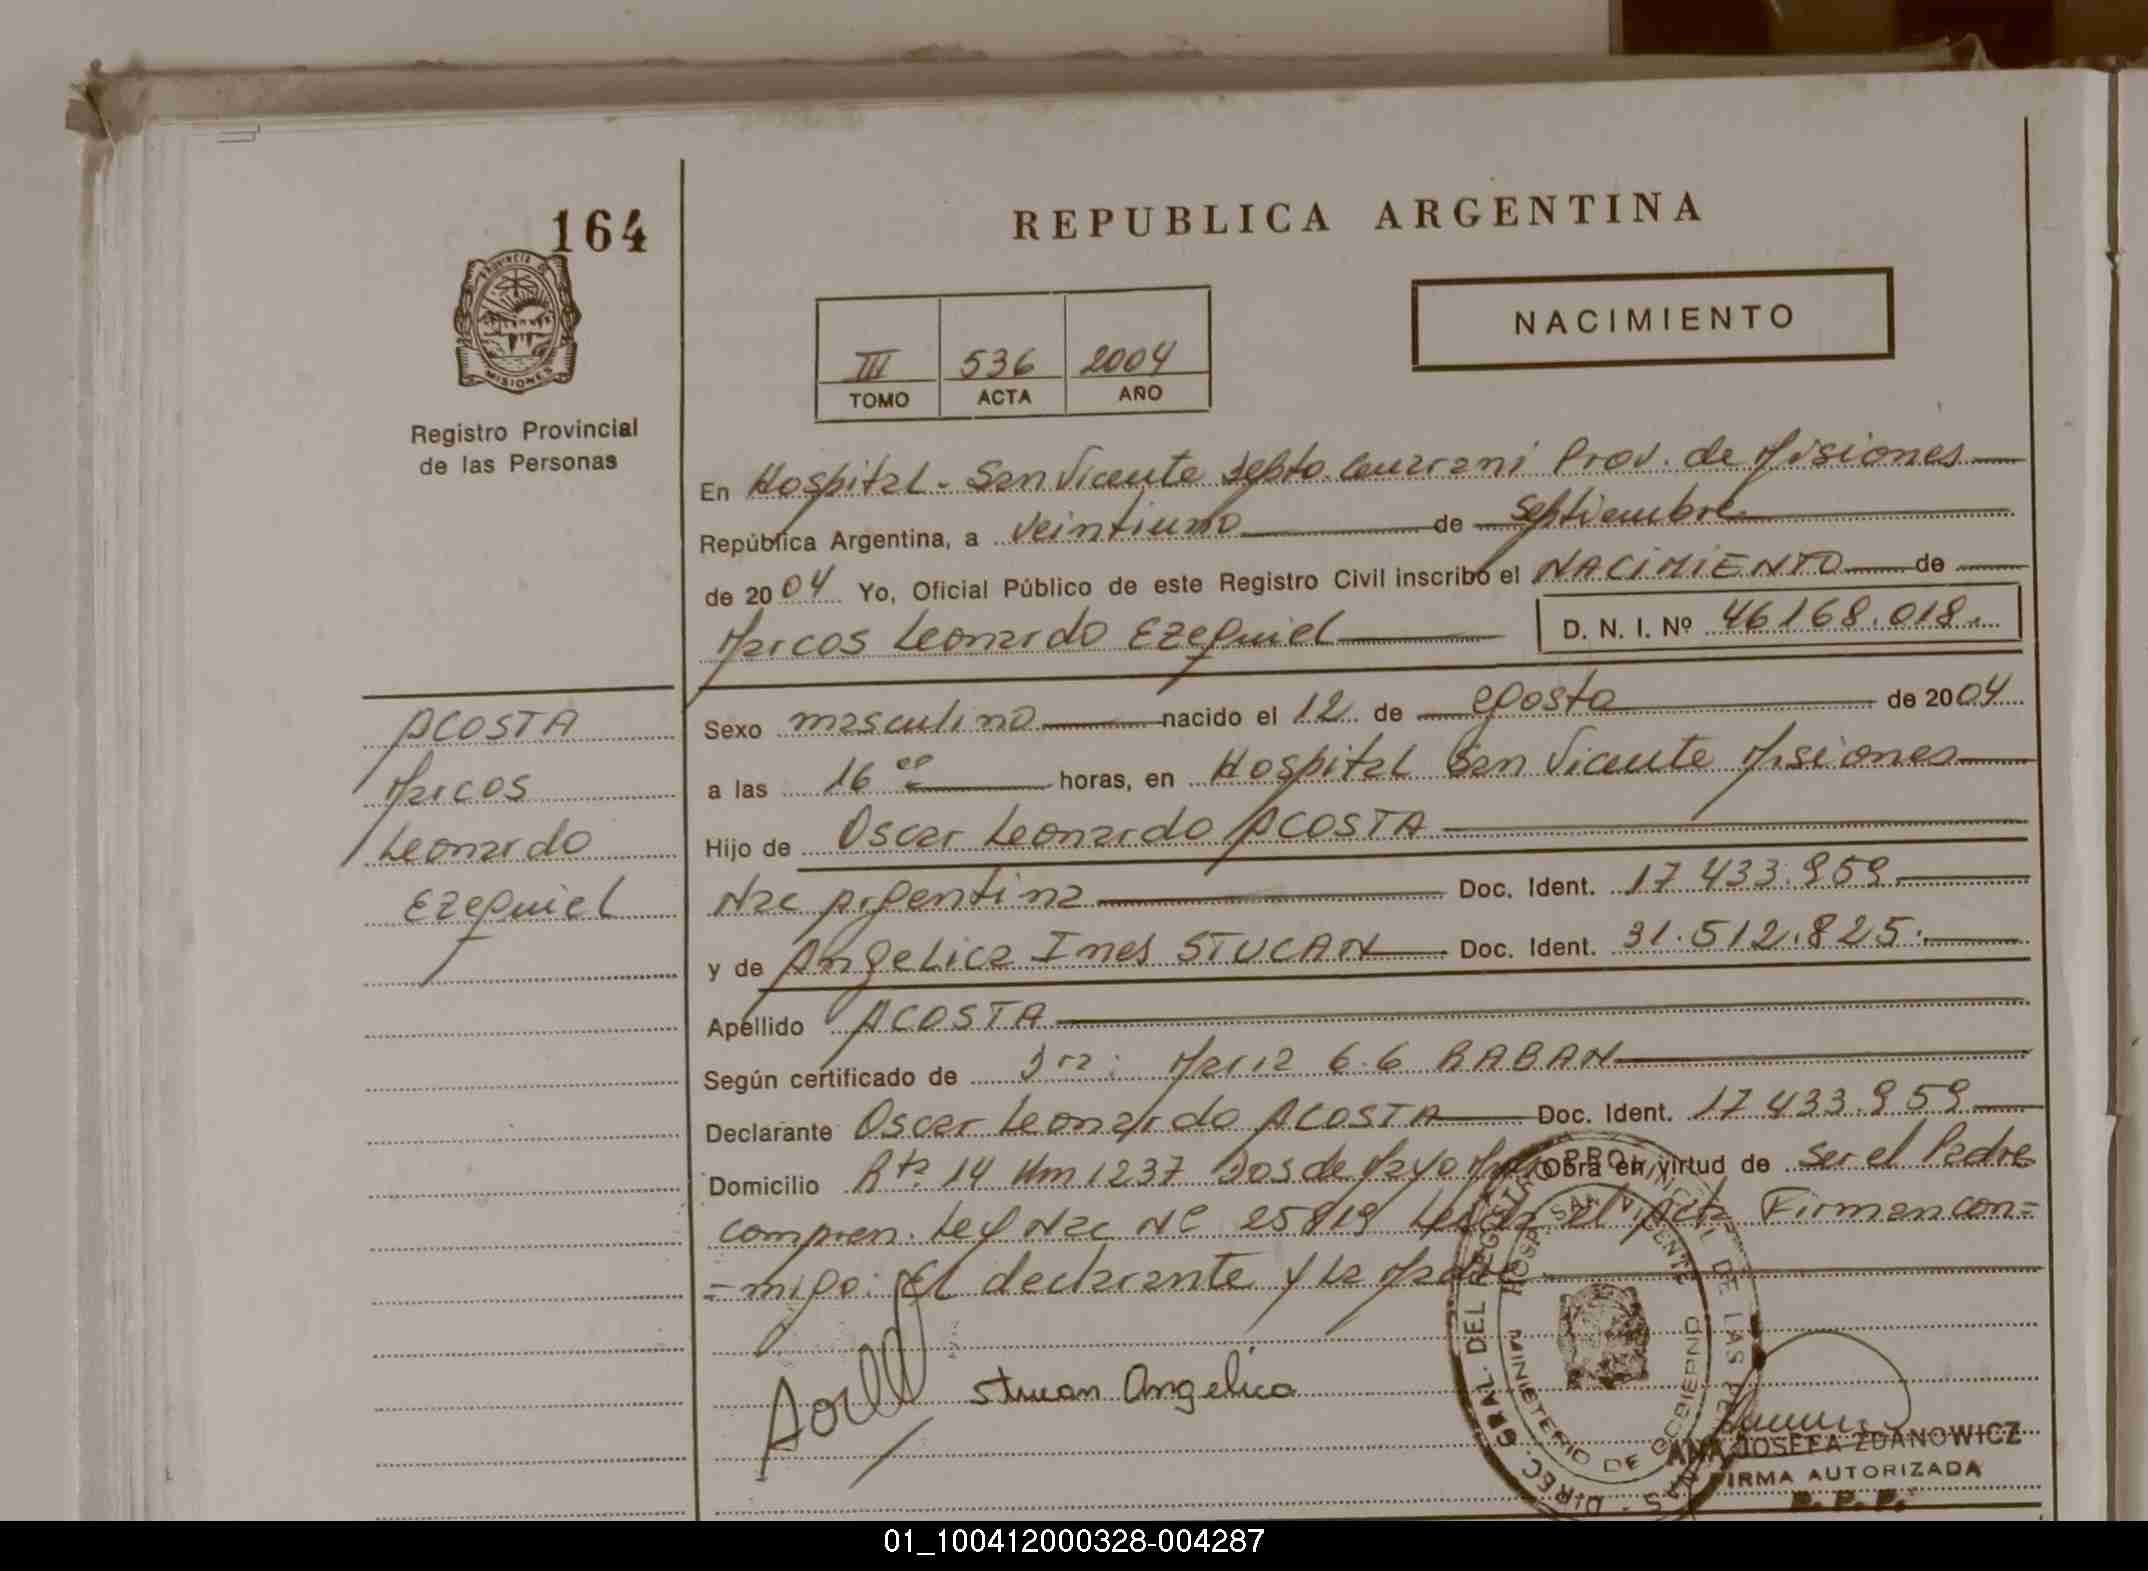 164
REPUBLICA ARGENTINA
NACIMIENTO
III 536 2004
TOMO ACTA AÑO
PROVINCIA DE
MISIONES
Registro Provincial
de las Personas
En Hospital - San Vicente Depto. Guarani Prov. de Misiones
República Argentina, a Veintiuno de Septiembre
de 2004 Yo, Oficial Público de este Registro Civil inscribo el NACIMIENTO de
Marcos Leonardo Ezequiel D. N. I. Nº 46168.018.
ACOSTA
Marcos
Leonardo
Ezequiel
Sexo masculino nacido el 12 de agosto de 2004
a las 16 horas, en Hospital San Vicente Misiones
Hijo de Oscar Leonardo ACOSTA
Nac Argentina Doc. Ident. 17 433.959
y de Angelica Ines STUCAN Doc. Ident. 31.512.825.
Apellido ACOSTA
Según certificado de Dra: Maria G. G RABAN
Declarante Oscar Leonardo ACOSTA Doc. Ident. 17 433.959
Domicilio Rta 14 Km 1237 Dos de Mayo Obra en virtud de Ser el Padre
compren. Ley Nac Nº 25819 Leida el Acta Firman con=
=migo: El declarante y la Madre
Stucan Angelica
DIREC. GRAL. DEL REGISTRO PROVINCIAL DE LAS PERSONAS
HOSP. SAN VICENTE
MINISTERIO DE GOBIERNO
ANA JOSEFA ZDANOWICZ
FIRMA AUTORIZADA
R. P. P.
01_100412000328-004287